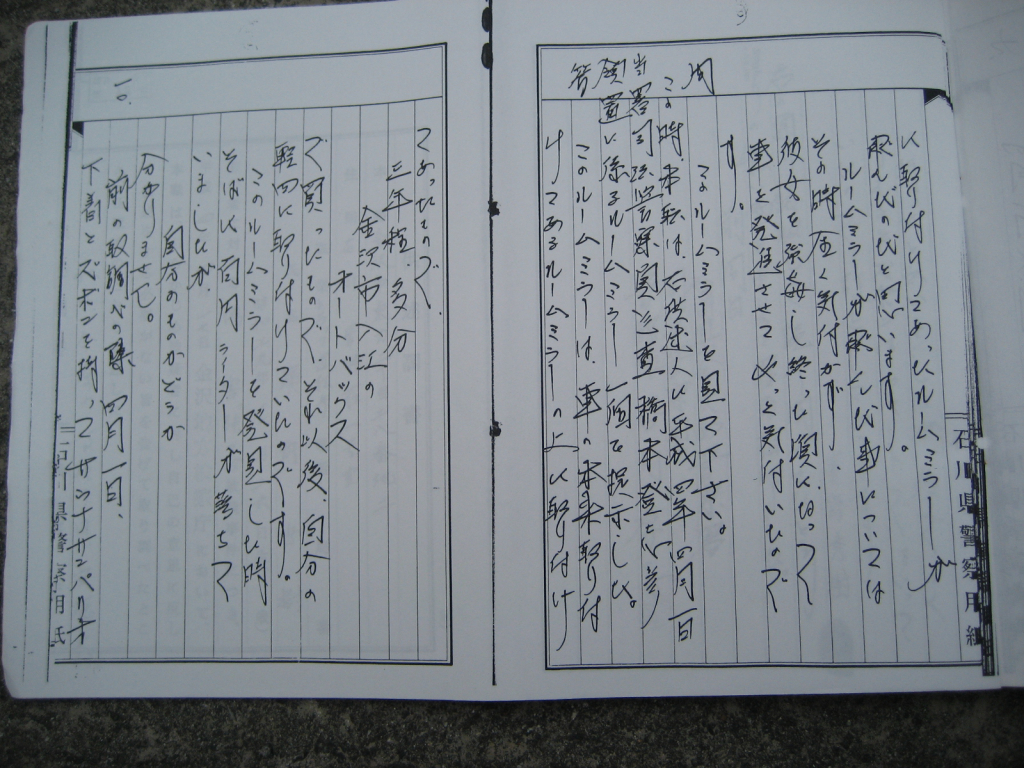 に取り付けてあったルームミラーが
飛んだのだと思います。
ルームミラーが飛んだ事については
その時全く気付かず、
彼女を強姦し終った頃になって
車を発進させて やっと気付いたので
す。
問
このルームミラーを見て下さい。
この時、本職は、右供述人に平成四年四月一日
当署司法警察員巡査 稿本 登 差
領置に係るルームミラー一個を提示した。
答
このルームミラーは、車の本来取り付
けてあるルームミラーの上に取り付け
石川県警察用紙
てあったもので、
三年程、多分
金沢市入江の
オートバックス
で買ったもので、それ以後、自分の
軽四に取り付けていたのです。
このルームミラーを発見した時
そばに百円ライターが落ちて
いましたが、
自分のものかどうか
分かりません。
前の取調べの際 四月一日、
下着とズボンを持って サンナナサンパリオ
石川県警察用紙
一〇